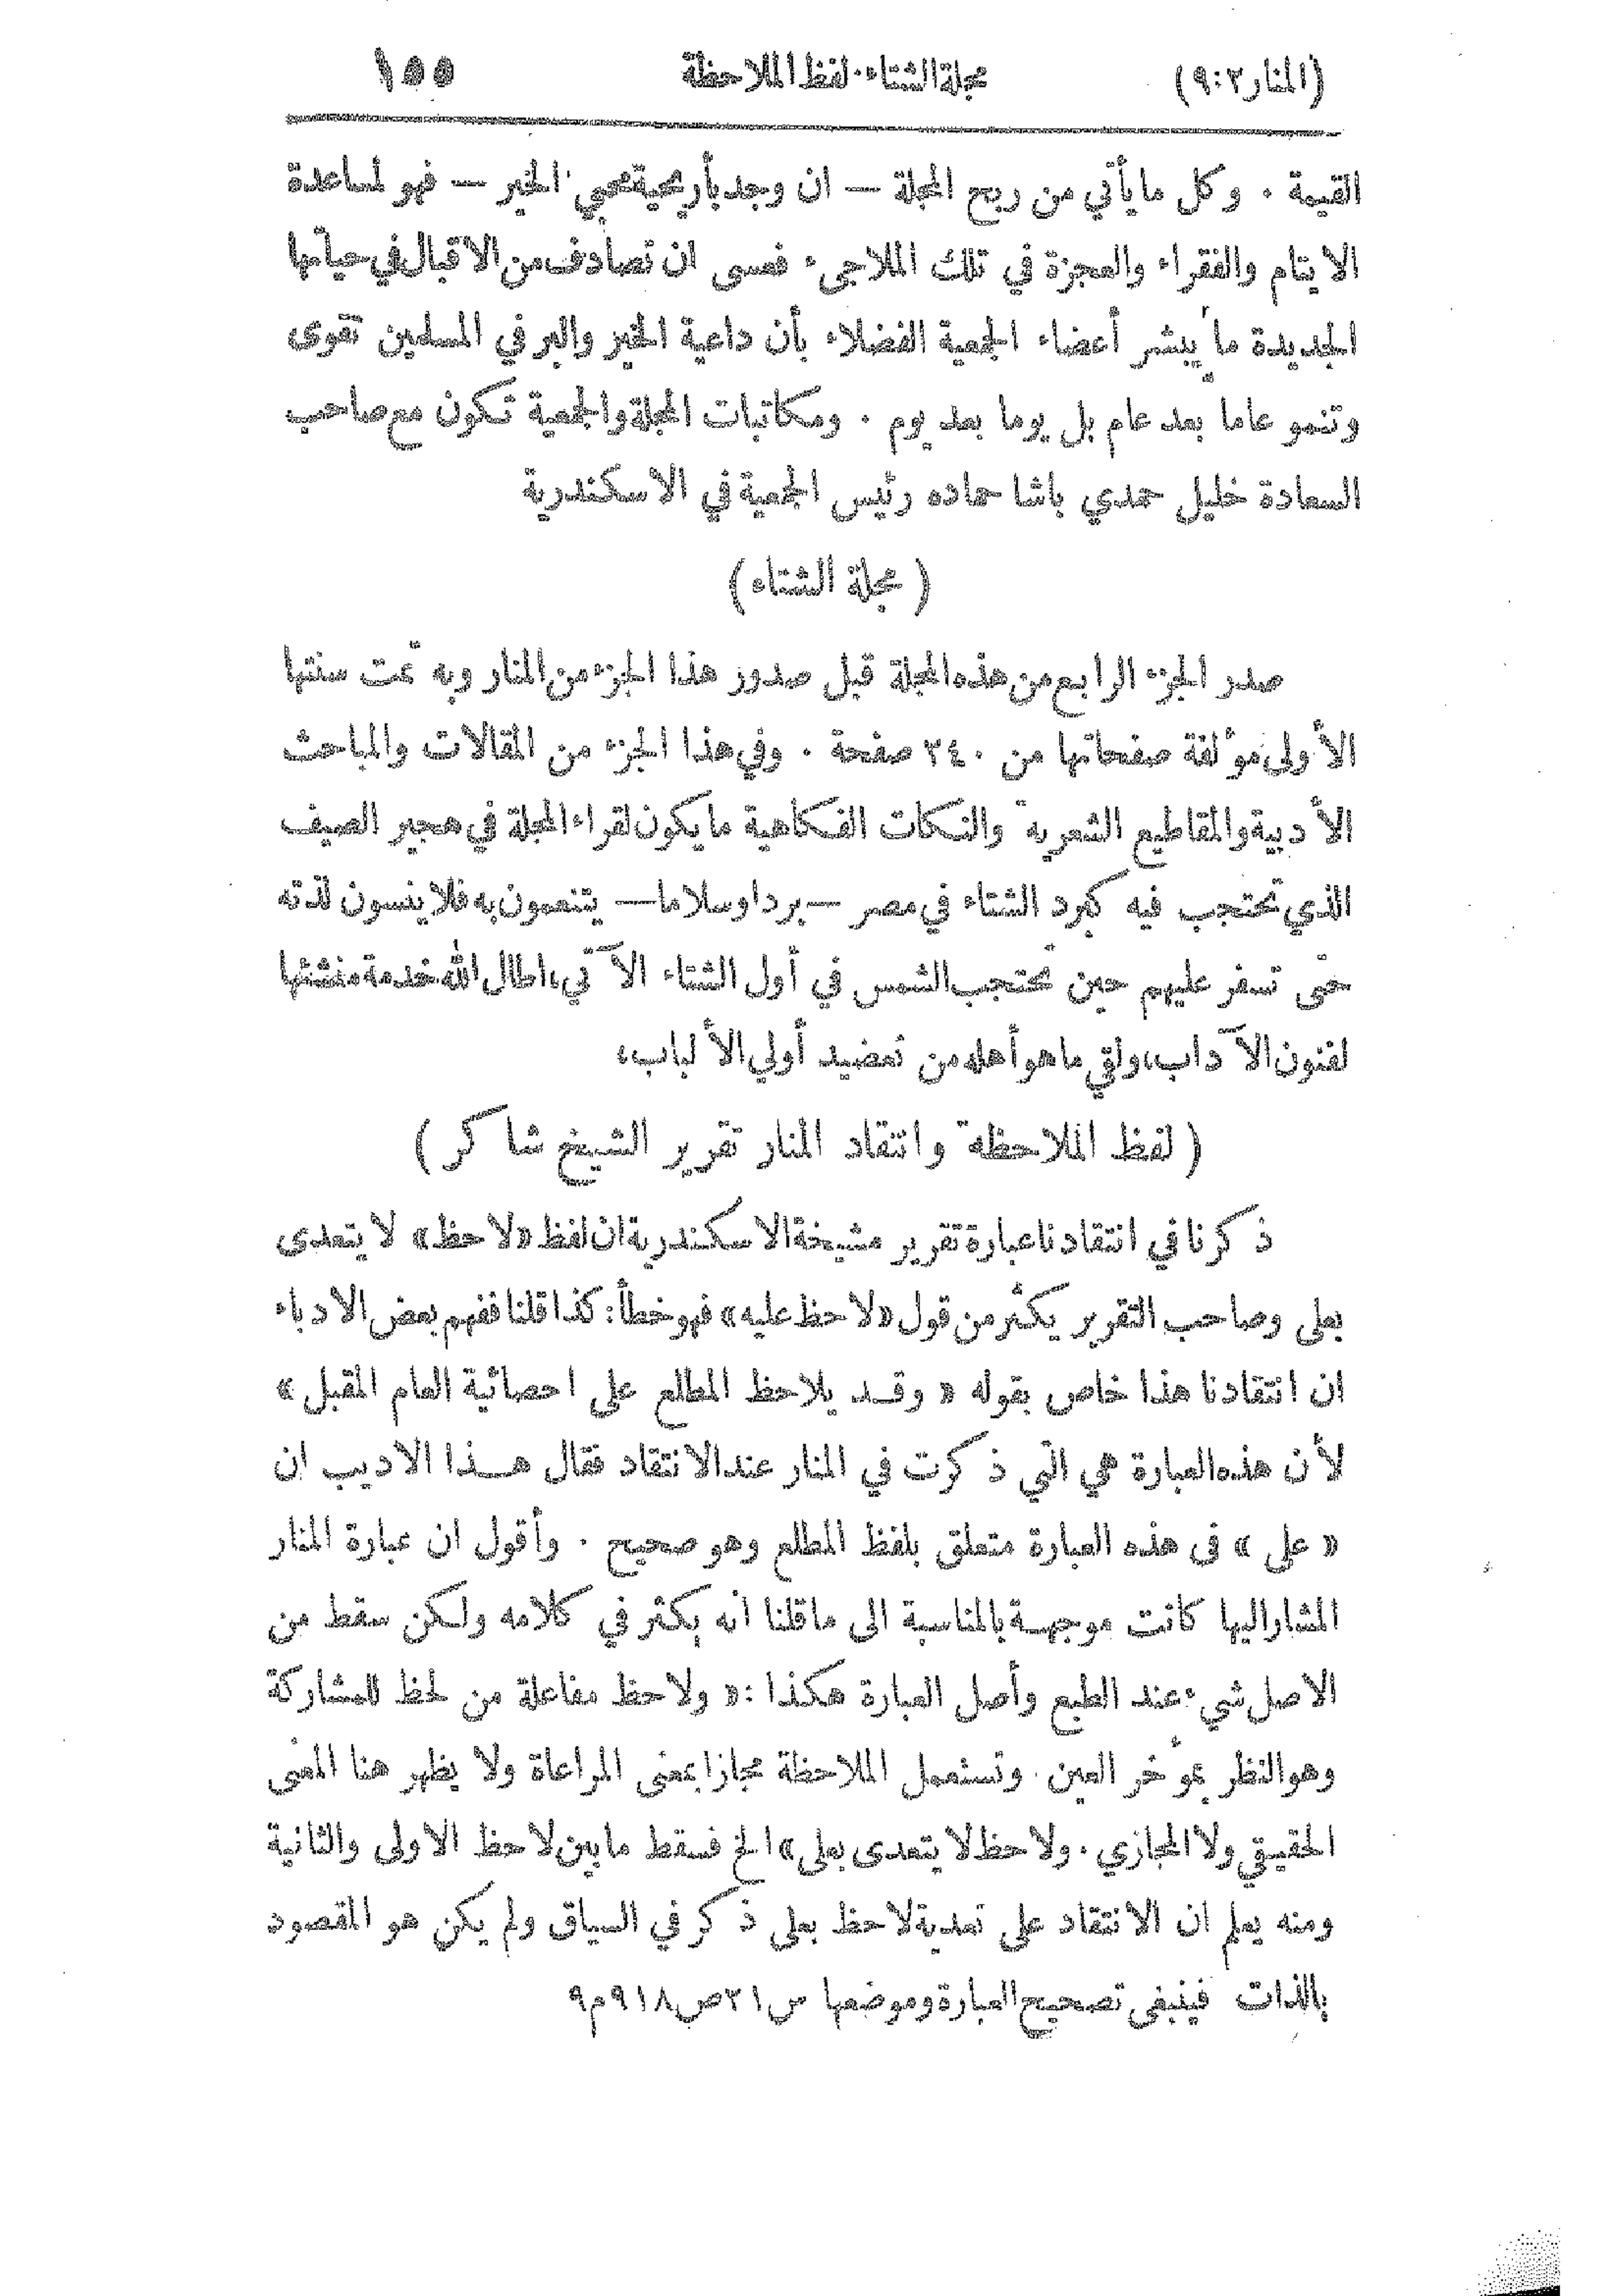 (المنار٢:٩) مجلة الشتاء. لفظ الملاحظة ١٥٥
القيمة . وكل ما يأتي من ربح المجلة — ان وجد بأريحية محبي الخير — فهو لمساعدة
الايتام والفقراء والعجزة في تلك الملاجىء فعسى ان تصادف من الاقبال في حياتها
الجديدة ما يبشر أعضاء الجمعية الفضلاء بأن داعية الخير والبر في المسلمين تقوى
وتنمو عاما بعد عام بل يوما بعد يوم . ومكاتبات المجلة والجمعية تكون مع صاحب
السعادة خليل حمدي باشا حماده رئيس الجمعية في الاسكندرية
( مجلة الشتاء )
صدر الجزء الرابع من هذه المجلة قبل صدور هذا الجزء من المنار وبه تمت سنتها
الأولى مؤلفة صفحاتها من ٢٤٠ صفحة . وفي هذا الجزء من المقالات والمباحث
الأدبية والمقاطيع الشعرية والنكات الفكاهية ما يكون لقراء المجلة في هجير الصيف
الذي تحتجب فيه كبرد الشتاء في مصر — بردا وسلاما — يتنعمون به فلا ينسون لذته
حتى تسفر عليهم حين تحتجب الشمس في أول الشتاء الآتي، اطال الله خدمة منشئها
لفنون الآداب، ولقي ما هو أهله من تعضيد أولي الألباب،
( لفظ الملاحظة وانتقاد المنار تقرير الشيخ شاكر )
ذكرنا في انتقادنا عبارة تقرير مشيخة الاسكندرية ان لفظ «لاحظ» لا يتعدى
بعلى وصاحب التقرير يكثر من قول «لاحظ عليه» فهو خطأ: كذا قلنا ففهم بعض الادباء
ان انتقادنا هذا خاص بقوله « وقد يلاحظ المطلع على احصائية العام المقبل »
لأن هذه العبارة هي التي ذكرت في المنار عند الانتقاد فقال هذا الاديب ان
« على » فى هذه العبارة متعلق بلفظ المطلع وهو صحيح . وأقول ان عبارة المنار
المشار اليها كانت موجهة بالمناسبة الى ما قلنا انه يكثر في كلامه ولكن سقط من
الاصل شيء عند الطبع وأصل العبارة هكذا : « ولاحظ مفاعلة من لحظ للمشاركة
وهو النظر بمؤخر العين . وتستعمل الملاحظة مجازا بمعنى المراعاة ولا يظهر هنا المعنى
الحقيقي ولا المجازي . ولاحظ لا يتعدى بعلى» الخ فسقط ما بين لاحظ الاولى والثانية
ومنه يعلم ان الانتقاد على تعدية لاحظ بعلى ذكر في السياق ولم يكن هو المقصود
بالذات فينبغى تصحيح العبارة وموضعها س٢١ص٩١٨م٩